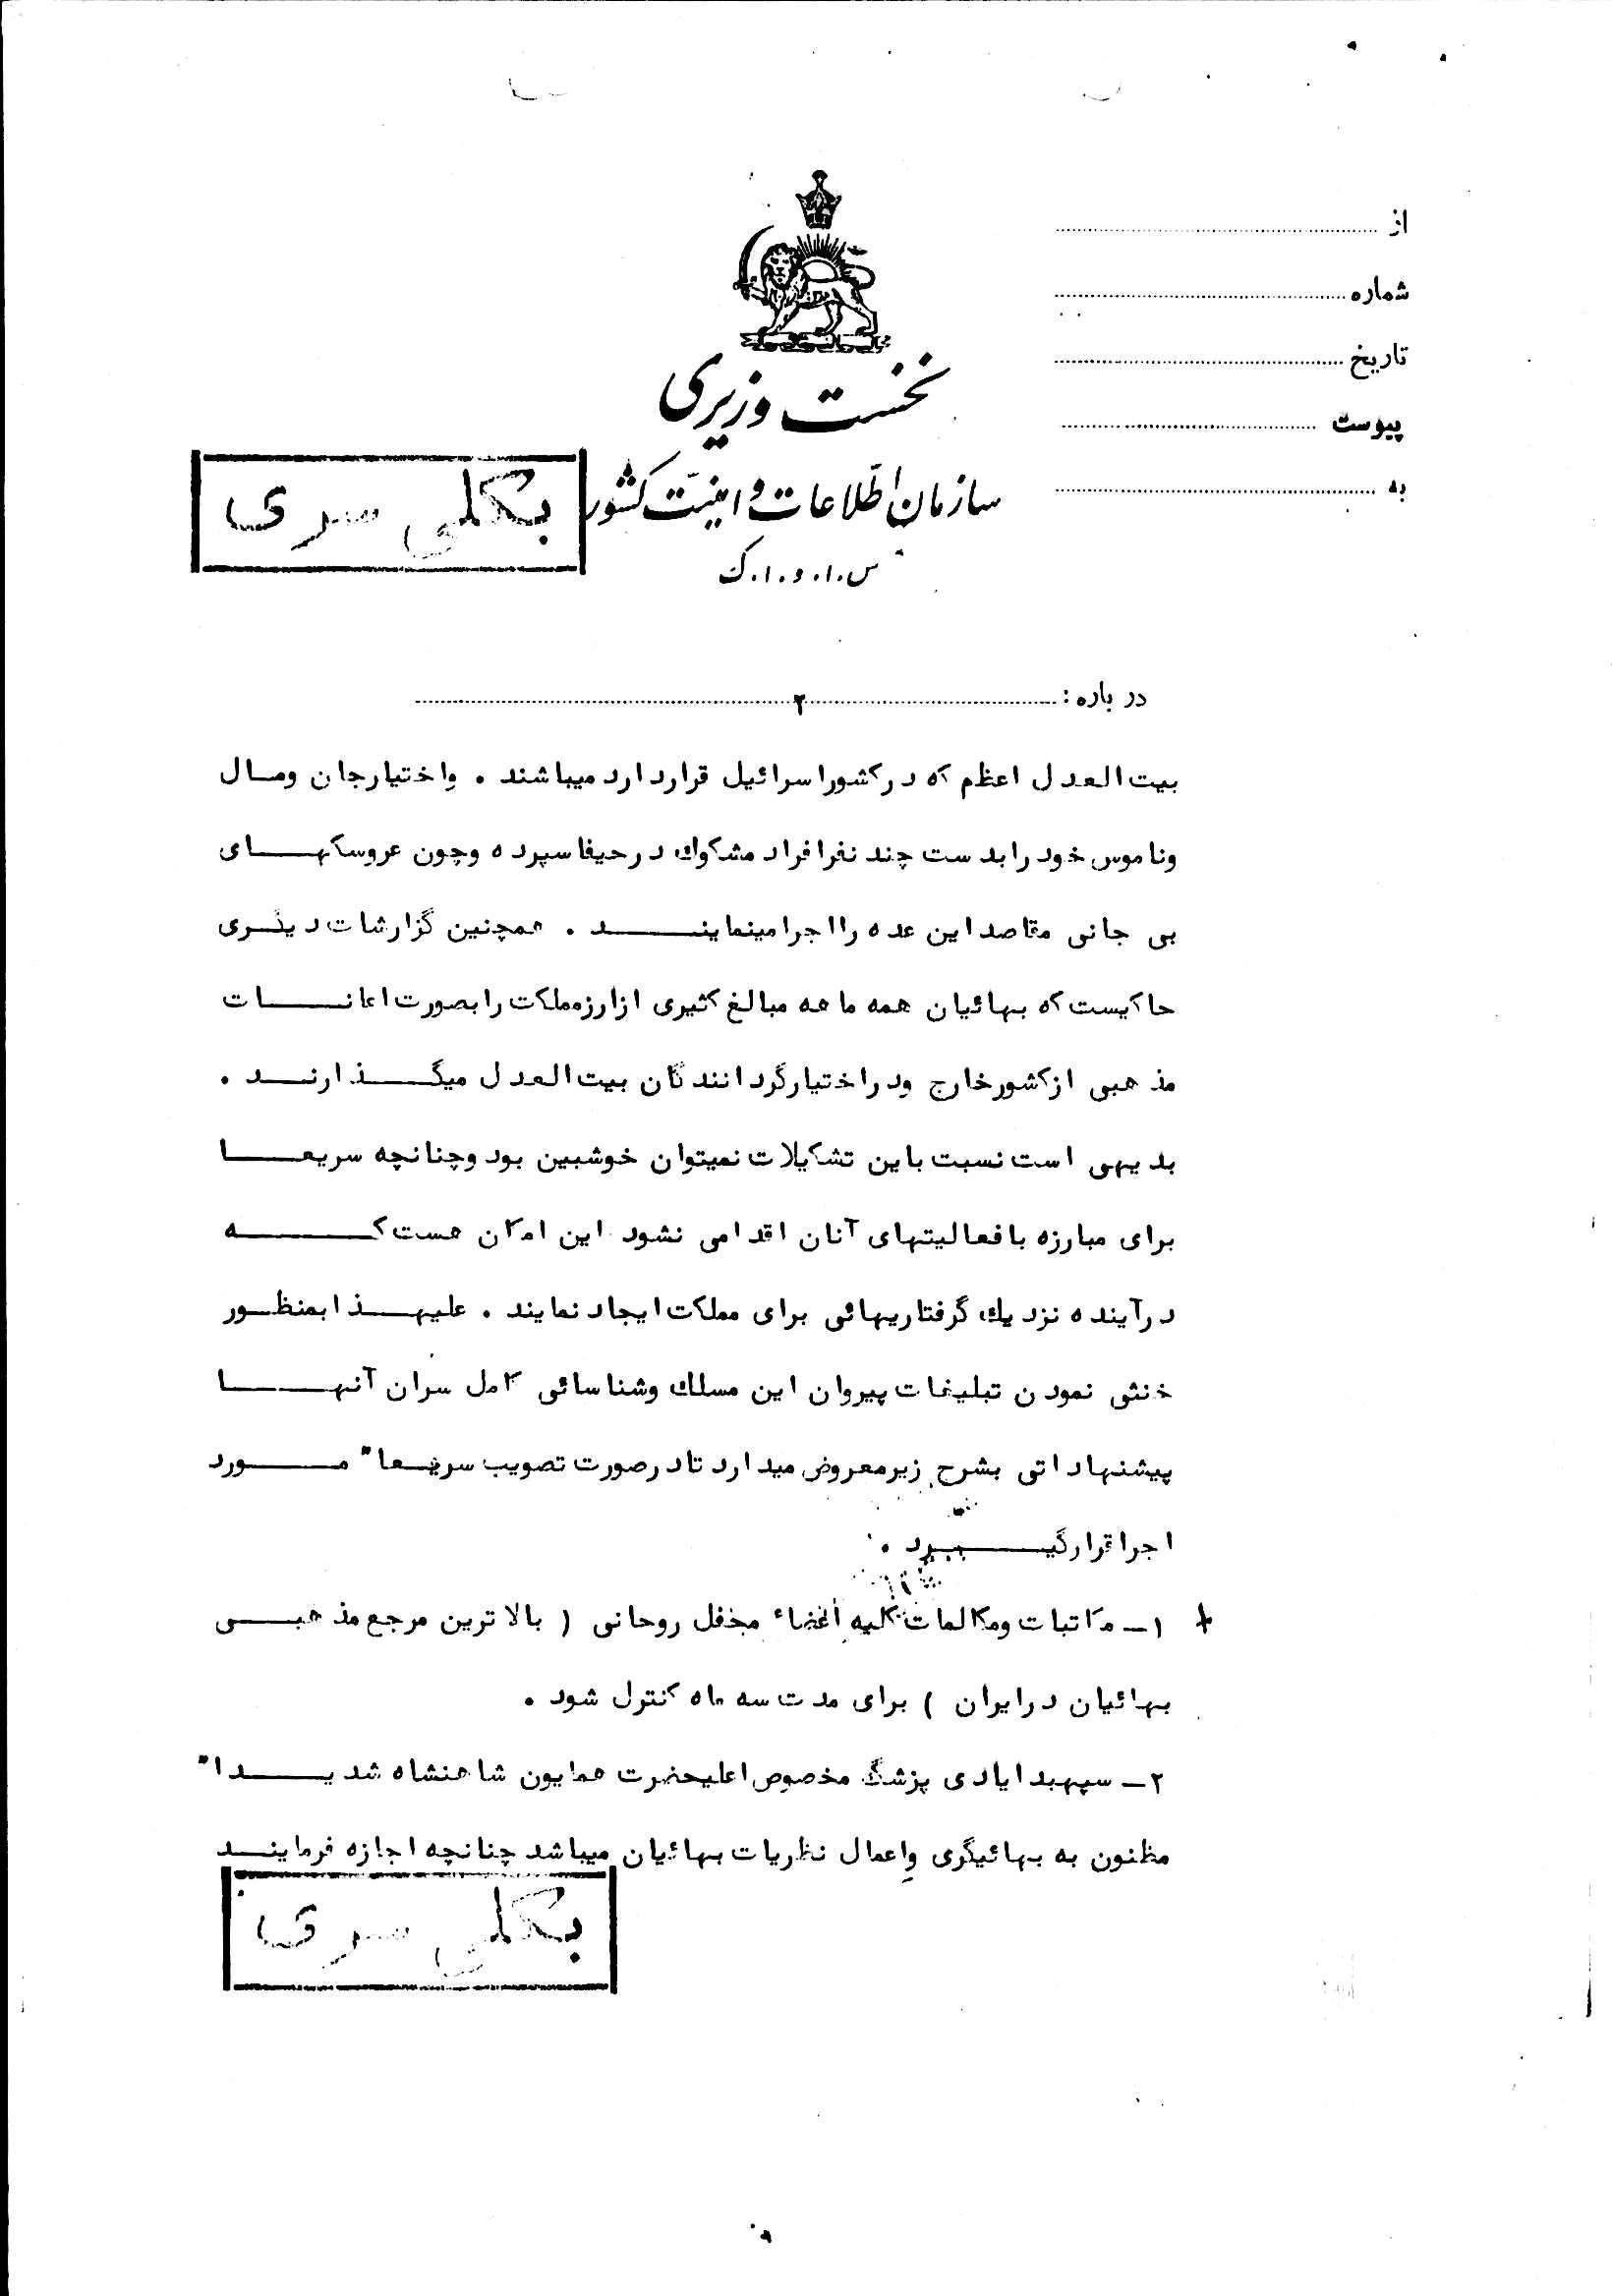 از
شماره
تاریخ
پیوست
به
نخست وزیری
سازمان اطلاعات و امنیت کشور
س.ا.و.ا.ک
بکلی سری
در باره : ۲
بیت العدل اعظم که در کشور اسرائیل قرار دارد میباشند . و اختیار جان و مال
و ناموس خود را بدست چند نفر افراد مشکوک در حیفا سپرده و چون عروسکهای
بی جانی مقاصد این عده را اجرا مینمایند . همچنین گزارشات دیگری
حاکیست که بهائیان همه ماهه مبالغ کثیری از ارز مملکت را بصورت اعانات
مذهبی از کشور خارج و در اختیار گردانندگان بیت العدل میگذارند .
بدیهی است نسبت باین تشکیلات نمیتوان خوشبین بود و چنانچه سریعا
برای مبارزه با فعالیتهای آنان اقدامی نشود این امکان هست که
در آینده نزدیک گرفتاریهائی برای مملکت ایجاد نمایند . علیهذا بمنظور
خنثی نمودن تبلیغات پیروان این مسلک و شناسائی کامل سران آنها
پیشنهاداتی بشرح زیر معروض میدارد تا در صورت تصویب سریعا" مورد
اجرا قرار گیرد .
۱ـ مکاتبات و مکالمات کلیه اعضاء محفل روحانی ( بالاترین مرجع مذهبی
بهائیان در ایران ) برای مدت سه ماه کنترل شود .
۲ـ سپهبد ایادی پزشک مخصوص اعلیحضرت همایون شاهنشاه شدیدا"
مظنون به بهائیگری و اعمال نظریات بهائیان میباشد چنانچه اجازه فرمایند
بکلی سری